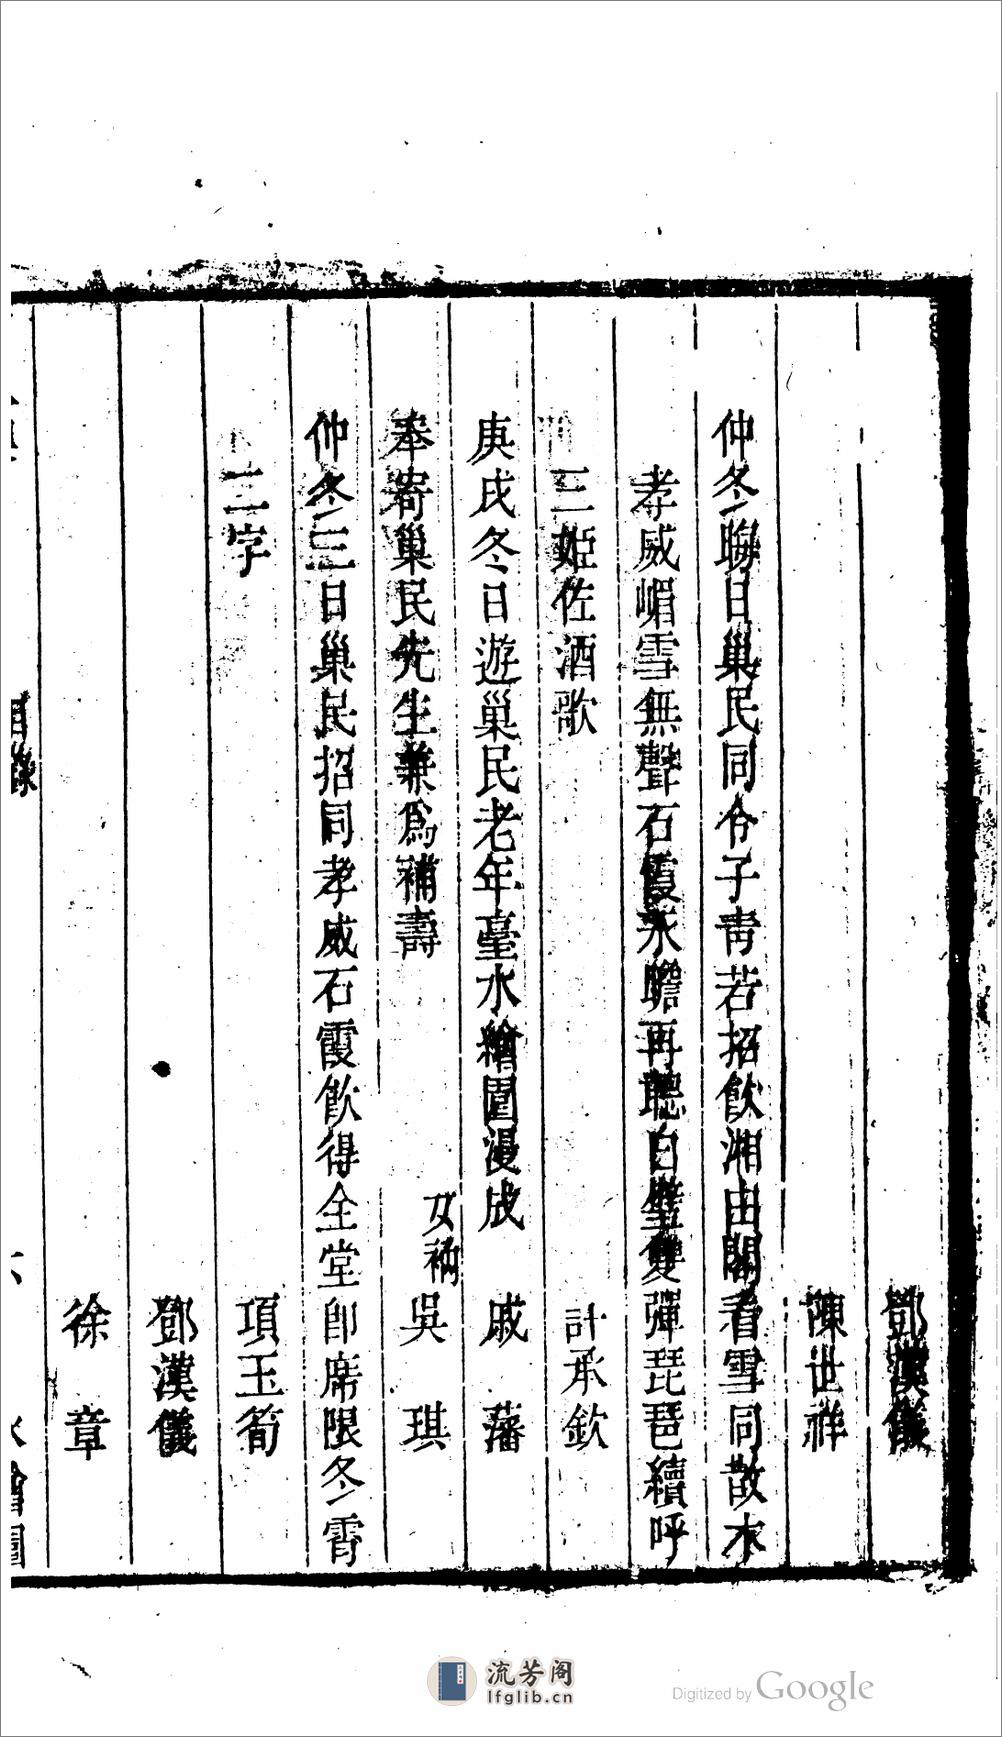 鄧漢儀
陳世祥
仲冬聯日巢民同令子青若招飲湘中閣看雪同散木
孝威嵋雪無聲石霞永瞻再聽白璧雙彈琵琶續呼
三姬佐酒歌
計承欽
庚戌冬日遊巢民老年臺水繪園漫成
戚藩
奉寄巢民先生兼為補壽
女補
吳琪
仲冬三日巢民招同孝威石霞飲得全堂卽席限冬霄
二字
項玉筍
鄧漢儀
徐章
目錄
六
水繪園
流芳阁
lfglib.cn
Digitized by Google